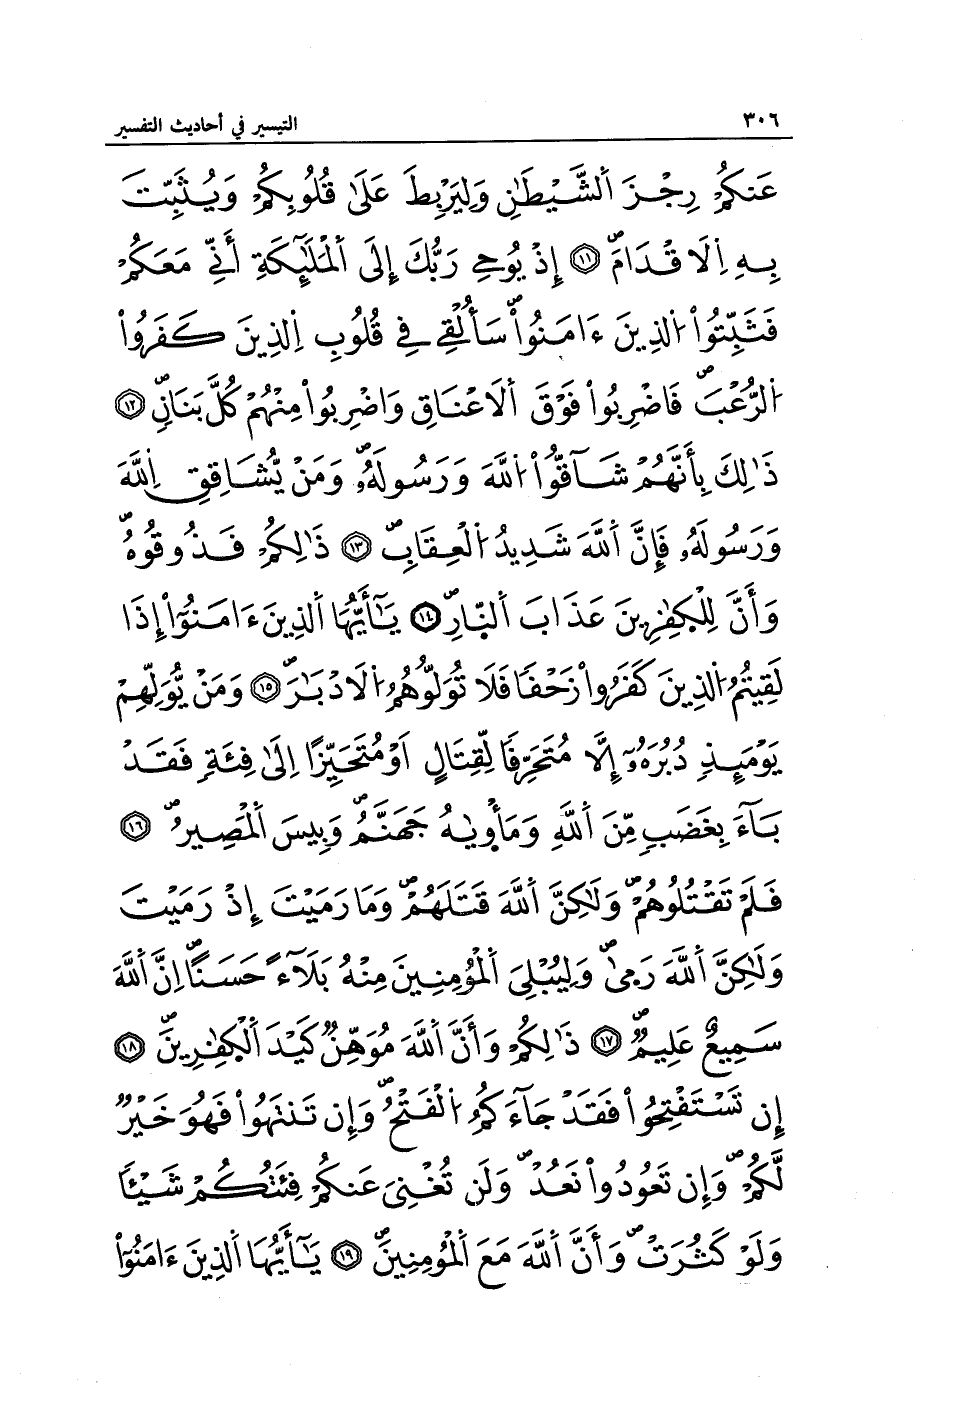 ٣٠٦ التيسير في أحاديث التفسير
عَنكُمْ رِجْزَ اَ۬لشَّيْطَٰنِ وَلِيَرْبِطَ عَلَىٰ قُلُوبِكُمْ وَيُثَبِّتَ
بِهِ اِ۬لَاقْدَامَۖ ⑪ إِذْ يُوحِے رَبُّكَ إِلَى اَ۬لْمَلَٰٓئِكَةِ أَنِّے مَعَكُمْ
فَثَبِّتُواْ اُ۬لذِينَ ءَامَنُواْۖ سَأُلْقِے فِے قُلُوبِ اِ۬لذِينَ كَفَرُواْ
اُ۬لرُّعْبَۖ فَاضْرِبُواْ فَوْقَ اَ۬لَاعْنَاقِ وَاضْرِبُواْ مِنْهُمْ كُلَّ بَنَانٖۖ ⑫
ذَٰلِكَ بِأَنَّهُمْ شَآقُّواْ اُ۬للَّهَ وَرَسُولَهُۥۖ وَمَنْ يُّشَاقِقِ اِ۬للَّهَ
وَرَسُولَهُۥ فَإِنَّ اَ۬للَّهَ شَدِيدُ اُ۬لْعِقَابِۖ ⑬ ذَٰلِكُمْ فَذُوقُوهُۖ
وَأَنَّ لِلْكٰفِرِينَ عَذَابَ اَ۬لنّ۪ارِۖ ⑭ يَٰٓأَيُّهَا اَ۬لذِينَ ءَامَنُوٓاْ إِذَا
لَقِيتُمُ اُ۬لذِينَ كَفَرُواْ زَحْفاٗ فَلَا تُوَلُّوهُمُ اُ۬لَادْبَٰرَۖ ⑮ وَمَنْ يُّوَلِّهِمْ
يَوْمَئِذٖ دُبُرَهُۥٓ إِلَّا مُتَحَرِّفاٗ لِّقِتَالٍ اَوْ مُتَحَيِّزاً اِلَىٰ فِئَةٖ فَقَدْ
بَآءَ بِغَضَبٖ مِّنَ اَ۬للَّهِ وَمَأْو۪يٰهُ جَهَنَّمُۖ وَبِيسَ اَ۬لْمَصِيرُۖ ⑯
فَلَمْ تَقْتُلُوهُمْۖ وَلَٰكِنَّ اَ۬للَّهَ قَتَلَهُمْۖ وَمَا رَمَيْتَ إِذْ رَمَيْتَ
وَلَٰكِنَّ اَ۬للَّهَ رَمىٰۖ وَلِيُبْلِيَ اَ۬لْمُؤْمِنِينَ مِنْهُ بَلَآءً حَسَناًۖ اِنَّ اَ۬للَّهَ
سَمِيعٌ عَلِيمٞۖ ⑰ ذَٰلِكُمْ وَأَنَّ اَ۬للَّهَ مُوَهِّنٞ كَيْدَ اَ۬لْكٰفِرِينَۖ ⑱
إِن تَسْتَفْتِحُواْ فَقَدْ جَآءَكُمُ اُ۬لْفَتْحُۖ وَإِن تَنتَهُواْ فَهُوَ خَيْرٞ
لَّكُمْۖ وَإِن تَعُودُواْ نَعُدْۖ وَلَن تُغْنِيَ عَنكُمْ فِئَتُكُمْ شَيْئاٗ
وَلَوْ كَثُرَتْۖ وَأَنَّ اَ۬للَّهَ مَعَ اَ۬لْمُؤْمِنِينَۖ ⑲ يَٰٓأَيُّهَا اَ۬لذِينَ ءَامَنُوٓاْ